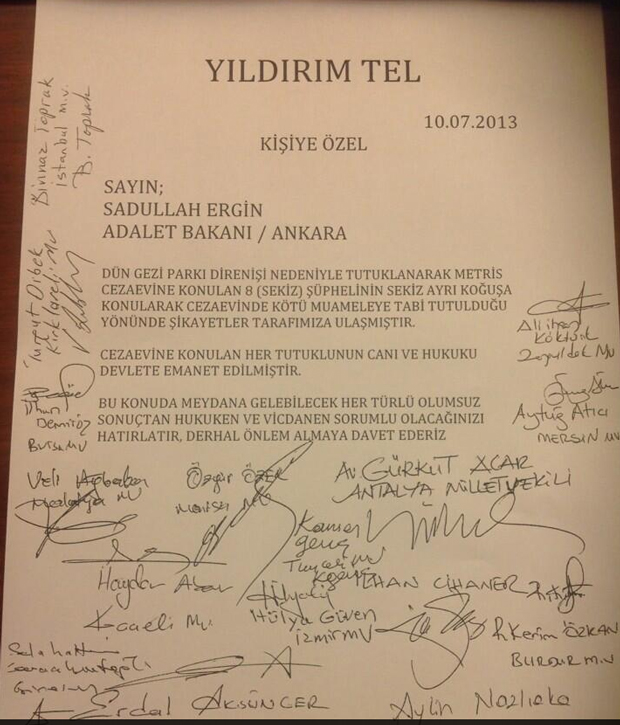 YILDIRIM TEL
10.07.2013
KİŞİYE ÖZEL
SAYIN;
SADULLAH ERGİN
ADALET BAKANI / ANKARA
DÜN GEZİ PARKI DİRENİŞİ NEDENİYLE TUTUKLANARAK METRİS
CEZAEVİNE KONULAN 8 (SEKİZ) ŞÜPHELİNİN SEKİZ AYRI KOĞUŞA
KONULARAK CEZAEVİNDE KÖTÜ MUAMELEYE TABİ TUTULDUĞU
YÖNÜNDE ŞİKAYETLER TARAFIMIZA ULAŞMIŞTIR.
CEZAEVİNE KONULAN HER TUTUKLUNUN CANI VE HUKUKU
DEVLETE EMANET EDİLMİŞTİR.
BU KONUDA MEYDANA GELEBİLECEK HER TÜRLÜ OLUMSUZ
SONUÇTAN HUKUKEN VE VİCDANEN SORUMLU OLACAĞINIZI
HATIRLATIR, DERHAL ÖNLEM ALMAYA DAVET EDERİZ
Binnaz Toprak
İstanbul m.v.
B. Toprak
Turgut Dibek
Kırklareli Mv
İlhan
Demiröz
Bursa MV
Ali İhsan
Köktürk
Zonguldak Mv
Aytuğ Atıcı
MERSİN MV
Veli Ağbaba
Malatya MV
Özgür ÖZEL
Manisa MV
Av. GÜRKUT ACAR
ANTALYA MİLLETVEKİLİ
Kamer
Genç
Tunceli mv
İLHAN CİHANER
Haydar Akar
Kocaeli Mv.
Hülya Güven
İZMİR MV
R. Kerim ÖZKAN
BURDUR M.V
Selahattin
Erdal AKSÜNGER
Aylin Nazlıaka